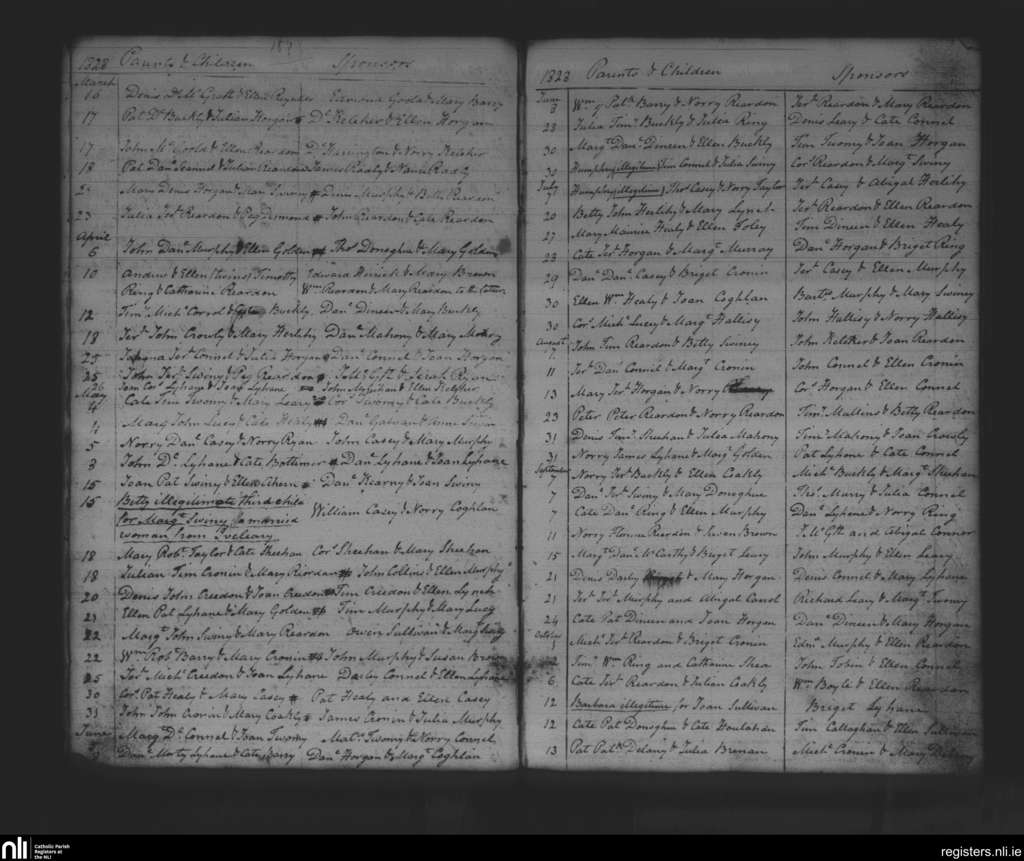 1828 Parents & Children Sponsors
March
16 Denis Mc Grath & Ellen Edmond Goold & Mary Barry
17 Pat Ds Buckly & Julian Horgan Ds Keleher & Ellen Horgan
17 John Mc Goold & Ellen Reardon Ds Harrington & Norry Keleher
18 Pat Dans & Julian James & Nano Ready
Mary Denis Horgan & Joan Twomy Denis Murphy & Bett Reardon
23 Julia Jers Reardon & Peg Desmond John Reardon & Cate Reardon
April
6 John Danl Murphy & Ellen Golden Thos Donoghue & Mary Golden
10 Andrew & Ellen (twins) Timothy Edward Herrick & Mary Brewen
Ring & Catharine Reardon Wm Reardon & Mary Reardon to the latter
12 Tims Michl Corrol & Buckly Danl Dineen & Mary Buckly
18 Jers John Crowly & Mary Herlihy Danl Mahony & Mary
25 Jers Connel & Julia Horgan Danl Connel & Joan Horgan
25 John Jers Swiny & Peg Reardon & Sarah Ryan
26 Joan Cors Lyhane & Joan Lyhane John & Ellen Keleher
May
4 Cate Tim Twomy & Mary Leary Cors Twomy & Cate Buckly
4 Margt John Lucy & Cate Healy Danl Galvan & Anne
5 Norry Danl Casey & Norry Ryan John Casey & Mary Murphy
8 John Ds Lyhane & Cate Danl Lyhane & Joan Lyhane
15 Joan Pat Swiny & Ellen Ahern Danl Kearny & Joan Swiny
15 Betty illegitimate third child
for Margt Swiny William Casey & Norry Coghlan
woman from Iveleary
18 Mary Robt Taylor & Cate Sheehan Cors Sheehan & Mary Sheehan
18 Julian Tim Cronin & Mary Riordan John Collins & Ellen Murphy
20 Denis John Creedon & Joan Creedon Tim Creedon & Ellen Lynch
21 Ellen Pat Lyhane & Mary Golden Tim Murphy & Mary Lucy
22 Margt John Swiny & Mary Reardon Owen Sullivan & Margt
22 Wm Robt Barry & Mary Cronin John Murphy & Susan Brown
25 Jers Michl Creedon & Joan Lyhane Darby Connel & Ellen Lyhane
30 Cors Pat Healy & Mary Casey Pat Healy and Ellen Casey
31 John John Cronin & Mary Coakly James Cronin & Julia Murphy
June
Margt Ds Connel & Joan Twomy Mats Twomy & Norry Connel
Danl Morty Lyhane & Cate Barry Danl Horgan & Margt Coghlan
1828 Parents & Children Sponsors
June
Wm of Patk Barry & Norry Reardon Jers Reardon & Mary Reardon
28 Julia Tims Buckly & Julia Ring Denis Leary & Cate Connel
30 Margt Danl Dineen & Ellen Buckly Tim Twomy & Joan Horgan
30 Humphry (illegitime) Tim Connel & Julia Swiny Cors Reardon & Margt Swiny
July
Humphry (illegitime) Thos Casey & Norry Taylor Jers Casey & Abigal Herlihy
20 Betty John Herlihy & Mary Lynch Jers Reardon & Ellen Reardon
27 Mary Maurice Healy & Ellen Foley Tim Dineen & Ellen Healy
28 Cate Jers Horgan & Margt Murray Danl Horgan & Briget Ring
29 Danl Danl Casey & Briget Cronin Jers Casey & Ellen Murphy
30 Ellen Wm Healy & Joan Coghlan Bartw Murphy & Mary Swiny
30 Cors Michl Lucey & Margt Hallisy John Hallisy & Norry Hallisy
August
John Tim Reardon & Betty Swiney John Keleher & Joan Reardon
11 Jers Dan Connel & Margt Cronin John Connel & Ellen Cronin
13 Mary Jers Horgan & Norry Cors Horgan & Ellen Connel
23 Peter Peter Reardon & Norry Reardon Tims Mullens & Betty Reardon
31 Denis Tims Sheehan & Julia Mahony Tims Mahony & Joan Crowly
31 Norry James Lyhane & Margt Golden Pat Lyhane & Cate Connel
September
7 Norry Jers Buckly & Ellen Coakly Michl Buckly & Margt Sheehan
7 Danl Jers Swiny & Mary Donoghue Thos Murry & Julia Connel
7 Cate Danl Ring & Ellen Murphy Danl Lyhane & Norry Ring
11 Norry Florence Riordan & Susan Brown and Abigal Connor
15 Margt Danl McCarthy & Briget Leary John Murphy & Ellen Leary
21 Denis Darby & Mary Horgan Denis Connel & Mary Lyhane
21 Jers Jers Murphy and Abigal Carrol Richard Leary & Margt Twomy
24 Cate Pat Dineen and Joan Horgan Danl Dineen & Mary Horgan
October
Michl Jers Reardon & Briget Cronin Edmd Murphy & Ellen Reardon
2 Tims Wm Ring and Catharine Shea John Tobin & Ellen Connel
6 Cate Jers Reardon & Julian Coakly Wm Boyle & Ellen Reardon
12 Barbara illegitime for Joan Sullivan Briget Lyhane
12 Cate Pat Donoghue & Cate Houlahan Tim Callaghan & Ellen Sullivan
13 Pat Patk Delany & Julia Brenan Michl Cronin & Mary Delany
nli Catholic Parish
Registers at
the NLI
registers.nli.ie